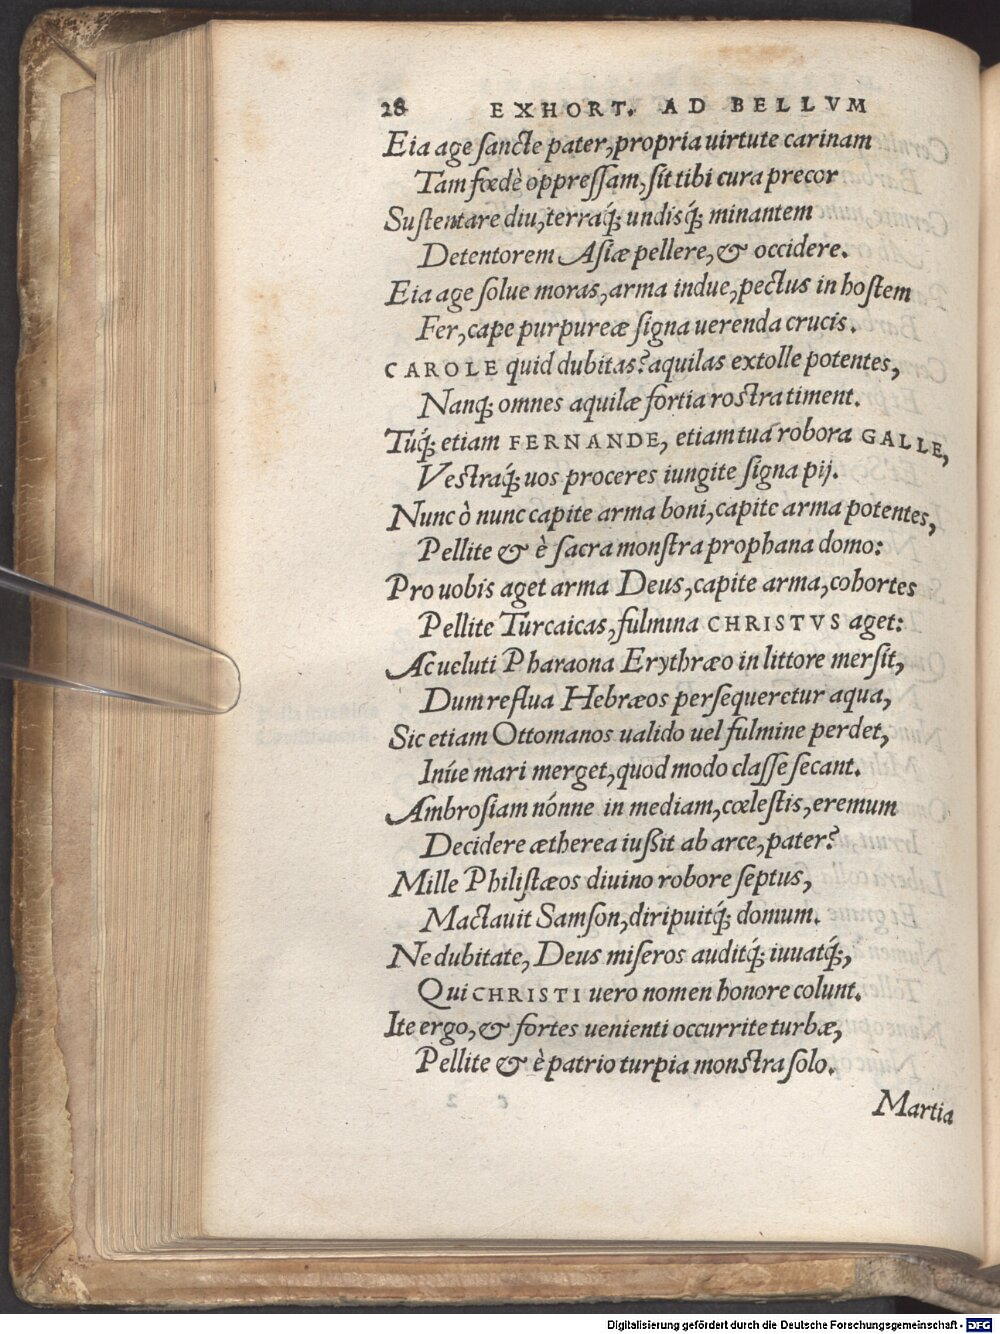 28 EXHORT. AD BELLVM
Eia age sancte pater, propria uirtute carinam
Tam fœdè oppressam, sit tibi cura precor
Sustentare diu, terraq́; undisq́; minantem
Detentorem Asiæ pellere, & occidere.
Eia age solue moras, arma indue, pectus in hostem
Fer, cape purpureæ signa uerenda crucis.
CAROLE quid dubitas? aquilas extolle potentes,
Nanq; omnes aquilæ fortia rostra timent.
Tuq́; etiam FERNANDE, etiam tua robora GALLE,
Vestraq́; uos proceres iungite signa pij.
Nunc ò nunc capite arma boni, capite arma potentes,
Pellite & è sacra monstra prophana domo:
Pro uobis aget arma Deus, capite arma, cohortes
Pellite Turcaicas, fulmina CHRISTVS aget:
Ac ueluti Pharaona Erythræo in littore mersit,
Dum reflua Hebræos persequeretur aqua,
Sic etiam Ottomanos ualido uel fulmine perdet,
Inúe mari merget, quod modo classe secant.
Ambrosiam nónne in mediam, cœlestis, eremum
Decidere ætherea iussit ab arce, pater?
Mille Philistæos diuino robore septus,
Mactauit Samson, diripuitq́; domum.
Ne dubitate, Deus miseros auditq́; iuuatq́;,
Qui CHRISTI uero nomen honore colunt.
Ite ergo, & fortes uenienti occurrite turbæ,
Pellite & è patrio turpia monstra solo.
Martia
Digitalisierung gefördert durch die Deutsche Forschungsgemeinschaft - DFG